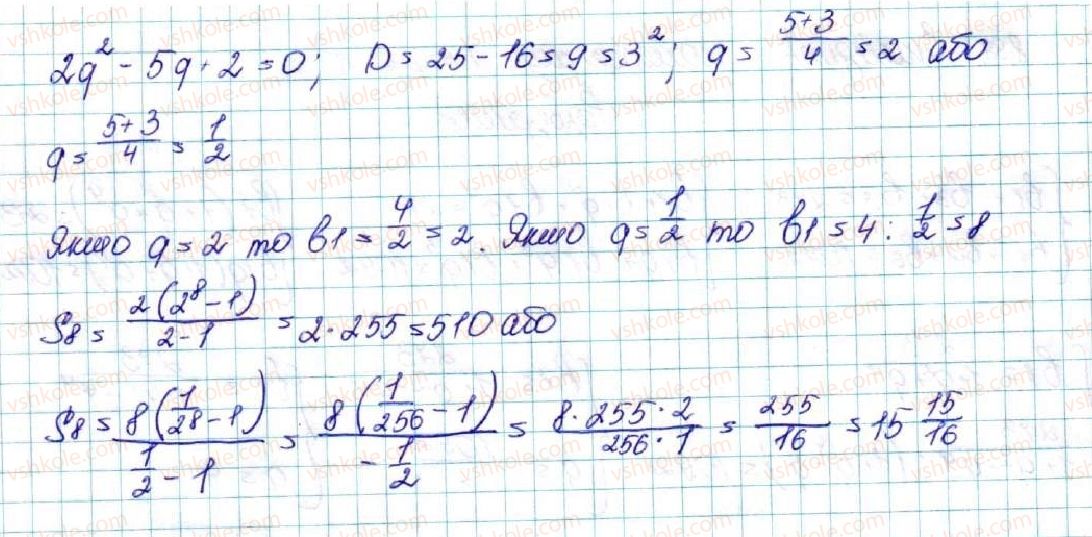 2q² - 5q + 2 = 0; D = 25 - 16 = 9 = 3²; q = (5+3)/4 = 2 або
q = (5+3)/4 = 1/2
Якщо q = 2 то b1 = 4/2 = 2. Якщо q = 1/2 то b1 = 4 : 1/2 = 8
S8 = 2(2⁸ - 1)/(2 - 1) = 2 · 255 = 510 або
S8 = 8(1/28 - 1)/(1/2 - 1) = 8(1/256 - 1)/(- 1/2) = (8 · 255 · 2)/(256 · 1) = 255/16 = 15 15/16
vshkole.com